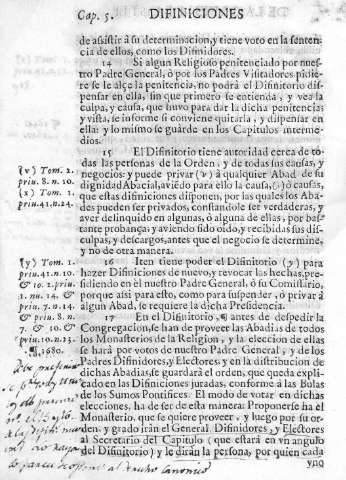 Cap. 5. DIFINICIONES
de assistir à su determinacion, y tiene voto en la senten-
cia de ellos, como los Difinidores.
14 Si algun Religioso penitenciado por nues-
tro Padre General, ò por los Padres Visitadores pidie-
re se le alçe la penitencia, no podrà el Difinitorio dis-
pensar en ella, sin que primero se entienda, y vea la
culpa, y causa, que huvo para dar la dicha penitencia
y vista, se informe si conviene quitarla, y dispensar en
ella: y lo mismo se guarde en los Capitulos interme-
dios.
15 El Difinitorio tiene autoridad cerca de to-
das las personas de la Orden, y de todas sus causas, y
negocios: y puede privar (v) à qualquier Abad de su
dignidad Abacial, aviédo para ello la causa, (x) ò causas,
que estas difiniciones disponen, por las quales los Aba-
des pueden ser privados, constandole ser verdaderas, y
aver delinquido en algunas, ò alguna de ellas, por bas-
tante probança; y aviendo sido oìdo, y recibidas sus dis-
culpas, y descargos, antes que el negocio se determine,
y no de otra manera.
(v) Tom. 2.
priu. 8. n. 10.
(x) Tom. 1.
priu. 41. n. 24.
16 Iten tiene poder el Difinitorio (y) para
hazer Difiniciones de nuevo, y revocar las hechas, presi-
diendo en èl nuestro Padre General, ò su Comissario,
porque assi para esto, como para suspender, ò privar à
algun Abad, se requiere la dicha Presidencia.
(y) Tom. 1.
priu. 41. n. 10.
& 10. 2. priu.
1. nu. 14. &
priu. 7. n. 14.
& priu. 8. n.
7. & 10. &
priu. 10. n. 23.
¶ 1680.
17 En el Difinitorio, ¶ antes de despedir la
Congregacion, se han de proveer las Abadias de todos
los Monasterios de la Religion, y la eleccion de ellas
se harà por votos de nuestro Padre General, y de los
Padres Difinidores, y Electores: y en la distribucion
de dichas Abadias, se guardarà el orden, que queda explicado
en las Difiniciones juradas, conforme à las Bulas
de los Sumos Pontifices. El modo de votar en dichas
elecciones, ha de ser de esta manera: Proponerse ha el
Monasterio, que se quiere proveer, y luego por su or-
den, y grado iràn el General, Difinidores, y Electores
al Secretario del Capitulo (que estarà en vn angulo
del Difinitorio) y le diràn la persona, por quien cada
vno